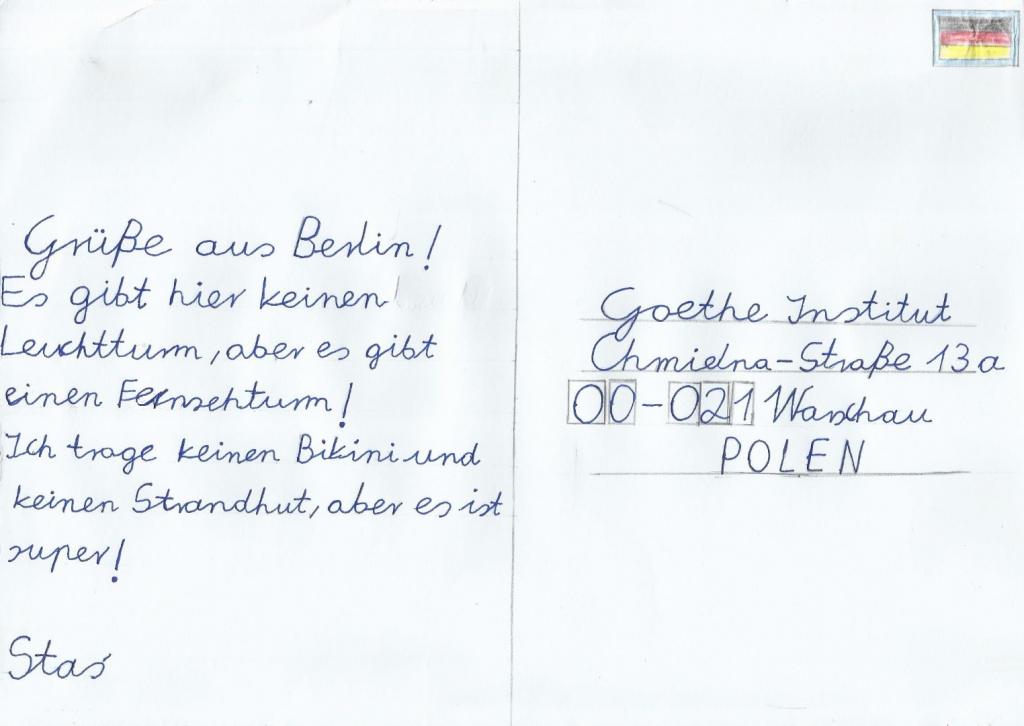 Grüße aus Berlin!
Es gibt hier keinen
Leuchtturm, aber es gibt
einen Fernsehturm!
Ich trage keinen Bikini und
keinen Strandhut, aber es ist
super!
Staś
Goethe Institut
Chmielna-Straße 13a
00-021 Warschau
POLEN